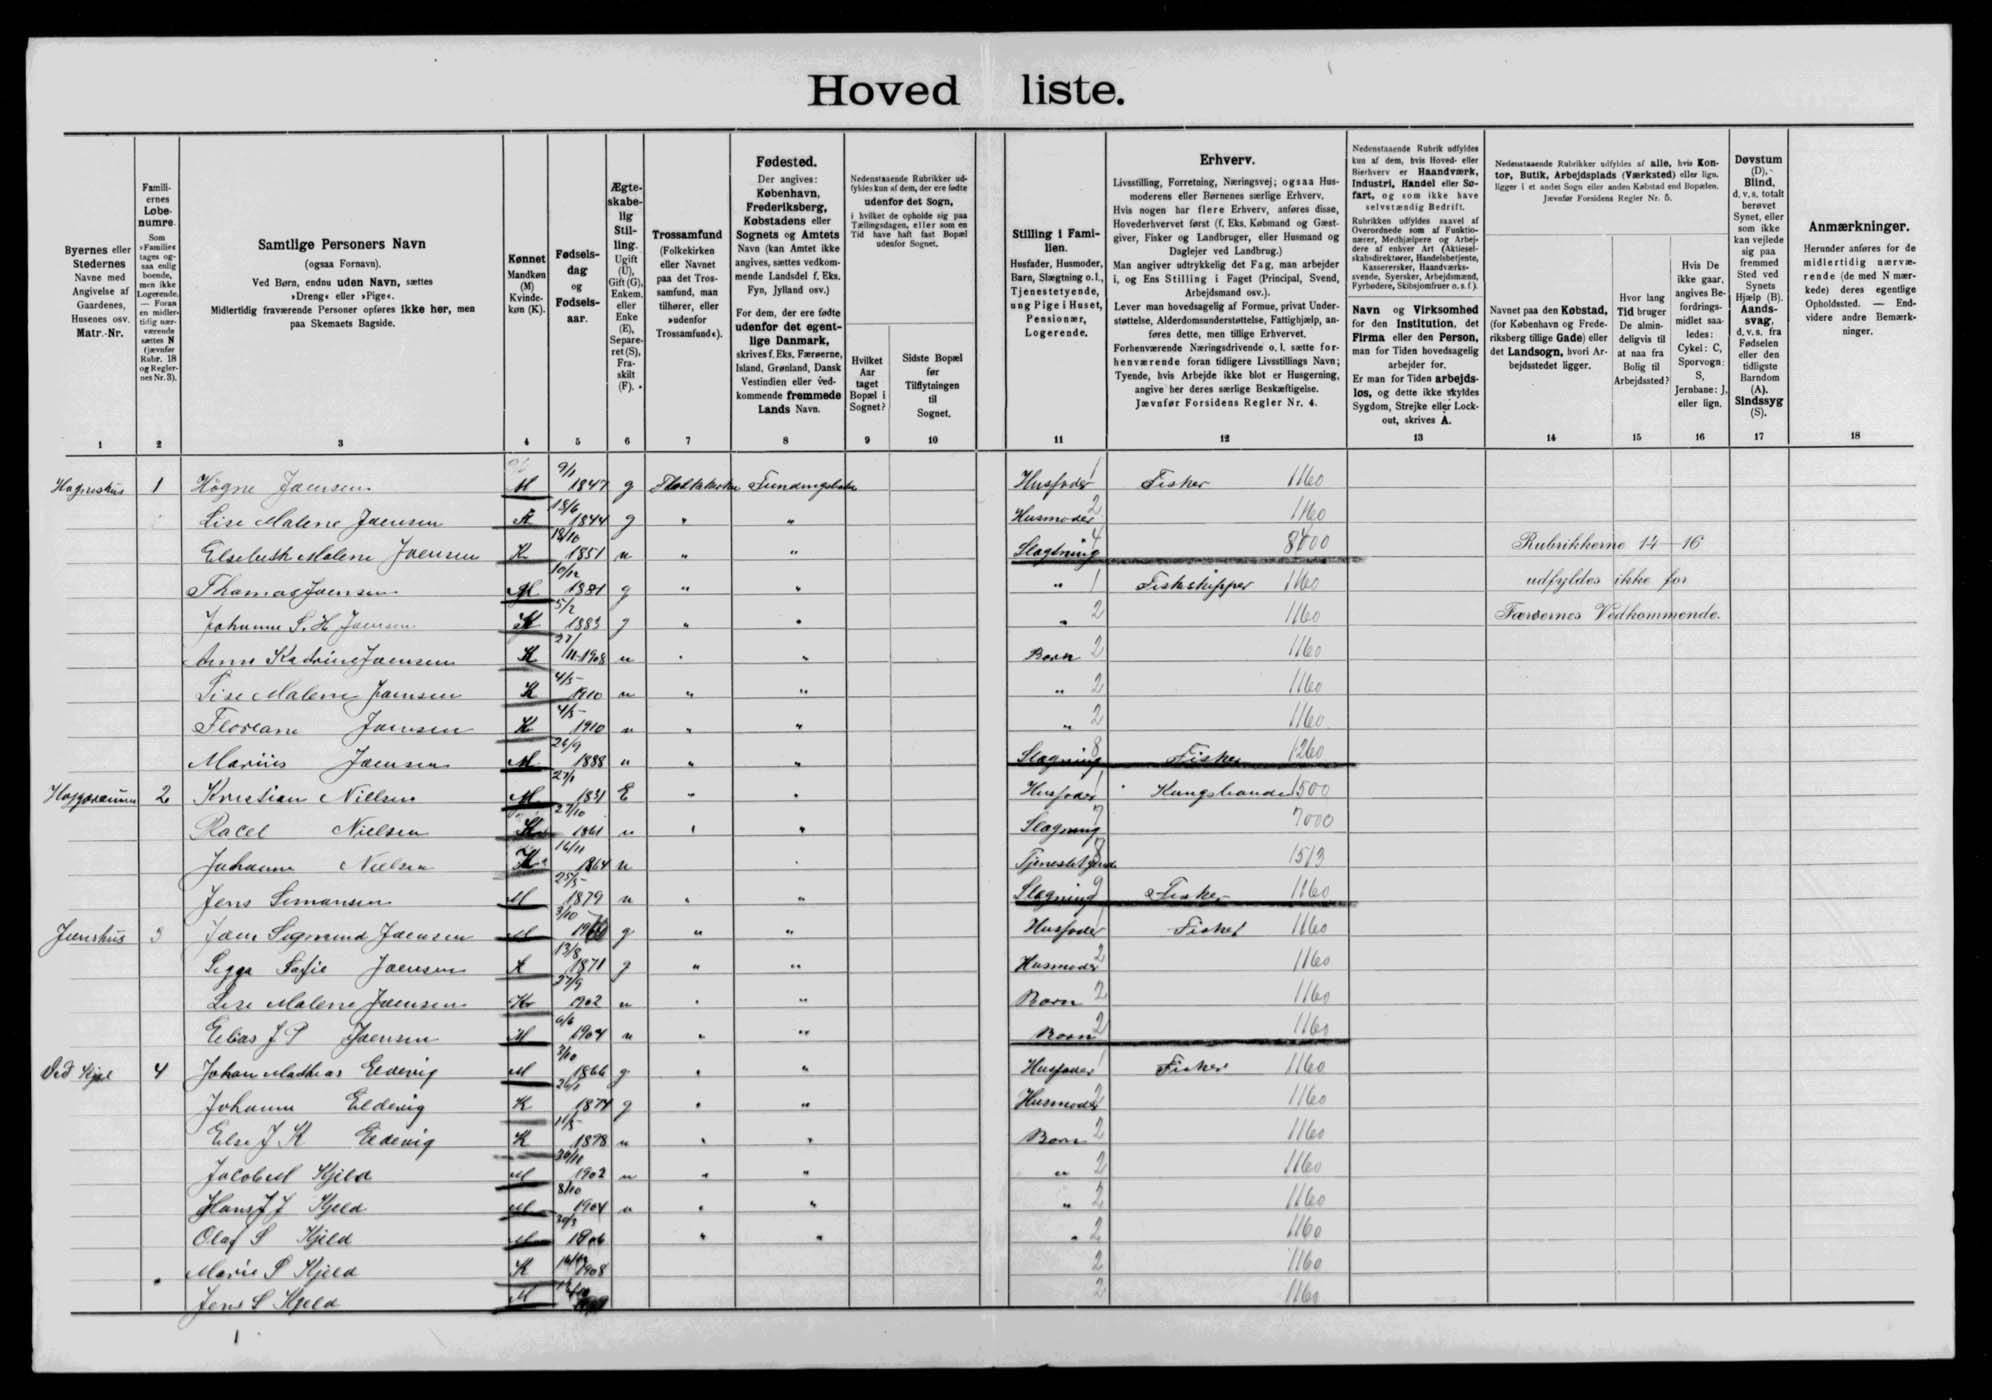 Hovedliste.
Byernes eller Stedernes Navne med Angivelse af Gaardenes, Husenes osv. Matr.-Nr.
Familiernes Løbenumre. Som »Familie« tages ogsaa enlig boende, men ikke Logerende. — Foran en midlertidig nærværende sættes N (jævnfør Rubr. 18 og Regler nes Nr. 3).
Samtlige Personers Navn (ogsaa Fornavn). Ved Børn, endnu uden Navn, sættes »Dreng« eller »Pige«. Midlertidig fraværende Personer opføres ikke her, men paa Skemaets Bagside.
Kønnet Mandkøn (M) Kvindekøn (K).
Fødselsdag og Fødselsaar.
Ægteskabelig Stilling. Ugift (U), Gift (G), Enkem. eller Enke (E), Separeret (S), Fraskilt (F).
Trossamfund (Folkekirken eller Navnet paa det Trossamfund, man tilhører, eller »udenfor Trossamfund«).
Fødested. Der angives: København, Frederiksberg, Købstadens eller Sognets og Amtets Navn (kan Amtet ikke angives, sættes vedkommende Landsdel f. Eks. Fyn, Jylland osv.) For dem, der ere fødte udenfor det egentlige Danmark, skrives f. Eks. Færøerne, Island, Grønland, Dansk Vestindien eller vedkommende fremmede Lands Navn.
Nedenstaaende Rubrikker udfyldes kun af dem, der ere fødte udenfor det Sogn, i hvilket de opholde sig paa Tællingsdagen, eller som en Tid have haft fast Bopæl udenfor Sognet.
Hvilket Aar taget Bopæl i Sognet?
Sidste Bopæl før Tilflytningen til Sognet.
Stilling i Familien. Husfader, Husmoder, Barn, Slægtning o. l., Tjenestetyende, ung Pige i Huset, Pensionær, Logerende.
Erhverv. Livsstilling, Forretning, Næringsvej; ogsaa Husmoderens eller Børnenes særlige Erhverv. Hvis nogen har flere Erhverv, anføres disse, Hovederhvervet først (f. Eks. Købmand og Gæstgiver, Fisker og Landbruger, eller Husmand og Daglejer ved Landbrug.) Man angiver udtrykkelig det Fag, man arbejder i, og Ens Stilling i Faget (Principal, Svend, Arbejdsmand osv.). Lever man hovedsagelig af Formue, privat Understøttelse, Alderdomsunderstøttelse, Fattighjælp, anføres dette, men tillige Erhvervet. Forhenværende Næringsdrivende o. l. sætte forhenværende foran tidligere Livsstillings Navn; Tyende, hvis Arbejde ikke blot er Husgerning, angive her deres særlige Beskæftigelse. Jævnfør Forsidens Regler Nr. 4.
Nedenstaaende Rubrik udfyldes kun af dem, hvis Hoved- eller Bierhverv er Haandværk, Industri, Handel eller Søfart, og som ikke have selvstændig Bedrift. Rubrikken udfyldes saavel af Overordnede som af Funktionærer, Medhjælpere og Arbejdere af enhver Art (Aktieselskabsdirektører, Handelsbetjente, Kasserersker, Haandværkssvende, Syersker, Arbejdsmænd, Fyrbødere, Skibsjomfruer o. s. f.).
Navn og Virksomhed for den Institution, det Firma eller den Person, man for Tiden hovedsagelig arbejder for. Er man for Tiden arbejdsløs, og dette ikke skyldes Sygdom, Strejke eller Lockout, skrives A.
Nedenstaaende Rubrikker udfyldes af alle, hvis Kontor, Butik, Arbejdsplads (Værksted) eller lign. ligger i et andet Sogn eller anden Købstad end Bopælen. Jævnfør Forsidens Regler Nr. 5.
Navnet paa den Købstad, (for København og Frederiksberg tillige Gade) eller det Landsogn, hvori Arbejdsstedet ligger.
Hvor lang Tid bruger De almindeligvis til at naa fra Bolig til Arbejdssted?
Hvis De ikke gaar, angives Befordringsmidlet saaledes: Cykel: C, Sporvogn: S, Jernbane: J, eller lign.
Døvstum (D), Blind, d. v. s. totalt berøvet Synet, eller som ikke kan vejlede sig paa fremmed Sted ved Synets Hjælp (B). Aandssvag, d. v. s. fra Fødselen eller den tidligste Barndom (A). Sindssyg (S).
Anmærkninger. Herunder anføres for de midlertidig nærværende (de med N mærkede) deres egentlige Opholdssted. — Endvidere andre Bemærkninger.
1 2 3 4 5 6 7 8 9 10 11 12 13 14 15 16 17 18
1 Høgne Joensen M 9/1 1847 g Husfader 1 Fisker 1160
Lise Malene Joensen K 18/6 1844 g " " Husmoder 2 1160
Malene Joensen K 18/10 1851 u " " Slægtning 4 8700 Rubrikkerne 14–16
Thomas Joensen M 10/12 1881 g " " " 1 Fiskeskipper 1160 udfyldes ikke for
Johanne S. H Joensen K 5/2 1883 g " " " 2 1160 Færøernes Vedkommende.
Anna Katrine Joensen K 1908 u " " Barn 2 1160
Lise Malene Joensen K 4/5 1910 u " " " 2 1160
Joensen K 4/5 1910 u " " " 2 1160
Marius Joensen M 26/9 1888 u " " Slægning 8 Fisker 1260
2 Kristian Nielsen M 27/1 1831 E " " Husfader 1 1500
Racel Nielsen K 27/10 1861 u " " Slægning 7 7000
Johanne Nielsen K 16/11 1864 u 8 1513
Jens Simonsen M 25/5 1879 u " " Slægning 9 Fisker 1160
Joenshus 3 Joen Sigmund Joensen M 3/10 g " " Husfader 1 Fisker 1160
Sigga Sofie Joensen K 13/8 1871 g " " Husmoder 2 1160
Lise Malene Joensen K 27/9 1902 u " " Barn 2 1160
Elias J P Joensen M 6/6 1904 u " " Barn 2 1160
Ved Kjeld 4 Johan Mathias Eldevig M 1866 g " " Husfader 1 Fisker 1160
Johanne Eldevig K 26/1 1874 g " " Husmoder 2 1160
Else J K Eldevig K 11/5 1898 u " " Barn 2 1160
Jacob M Kjeld M 30/11 1902 u " " " 2 1160
Hans J J Kjeld M 8/10 1904 u " " " 2 1160
Olaf S Kjeld M 1906 " " " 2 1160
Marie S Kjeld K 1908 2 1160
Jens S Kjeld M 2 1160
1